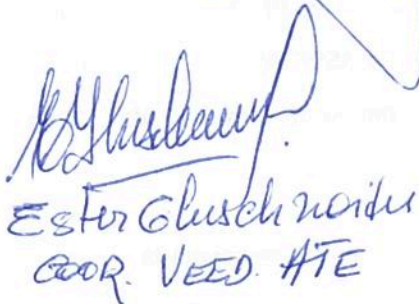 Ester Gluschnoider
COOR. VEED. ATE